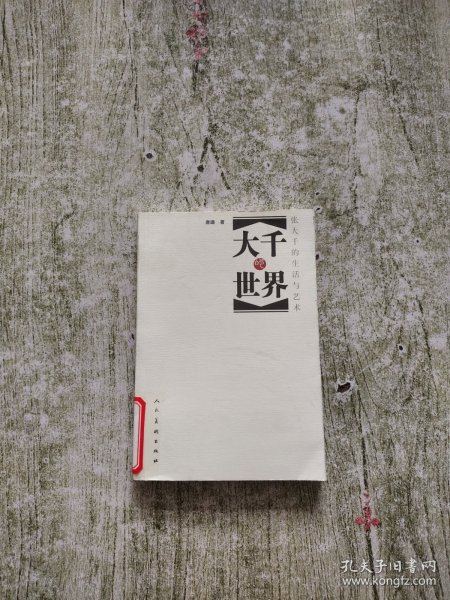 著
大千
的
世界
张大千的生活与艺术
人民美术出版社
孔夫子旧书网
www.kongfz.com